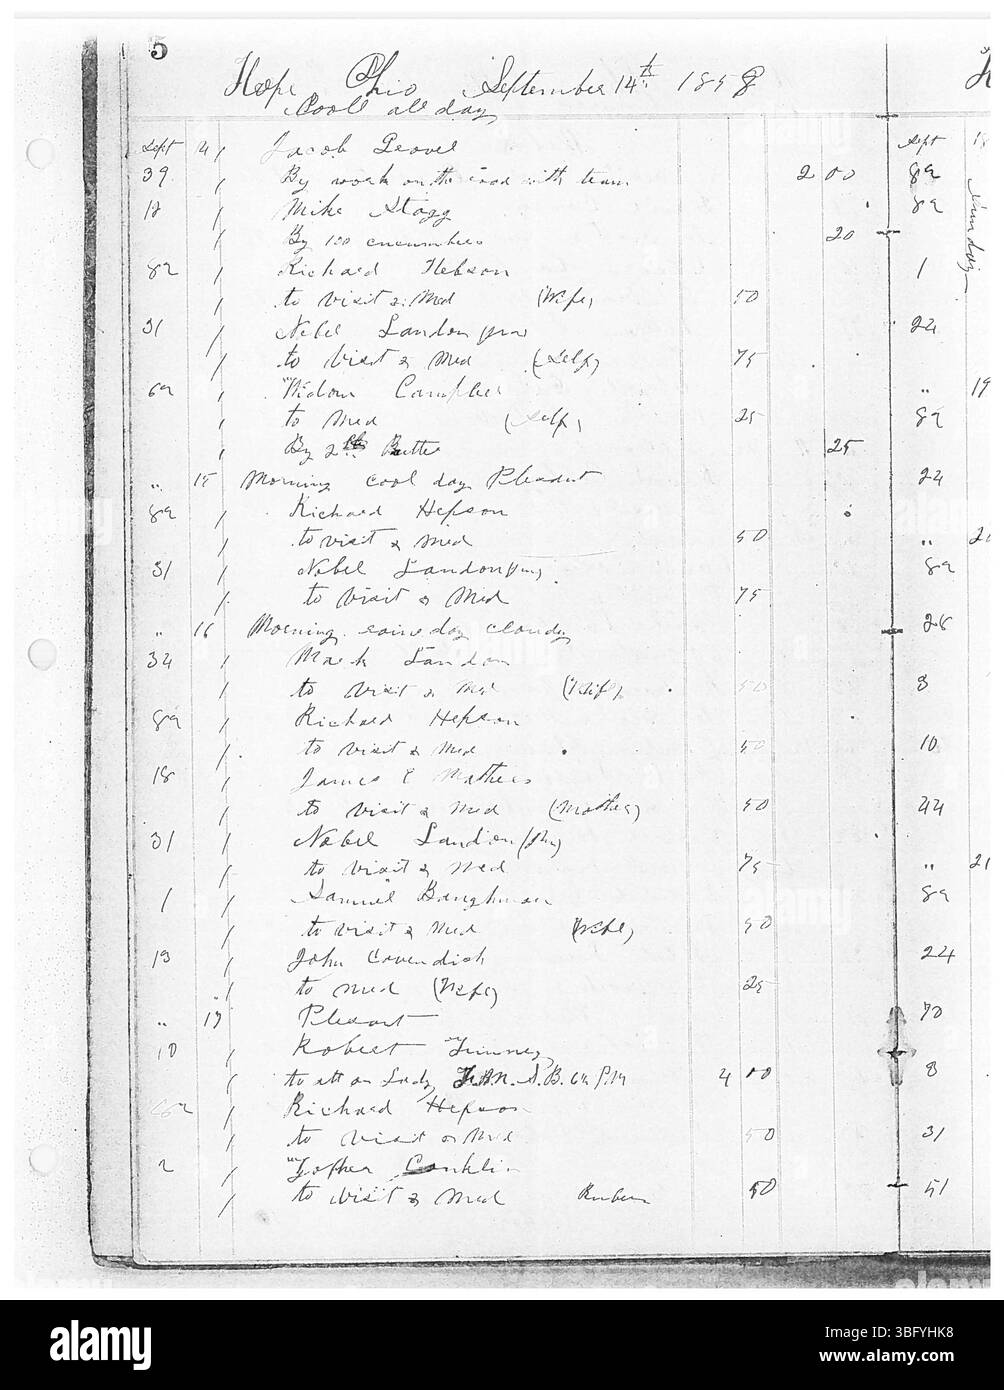 5
Hope Ohio September 14th 1858
Cool all day
Sept 14 Jacob
39 By work on the road with team 2 00
12 Mike Stagg
By 100 cucumbers 20
89 Richard Hebson
to visit & Med (Wife) 50
31 Nobel Landon
to Visit & Med (Self) 75
69 Widow Campbell
to Med (Self) 25
By 2 lb Butter 25
" 15 Morning cool day Pleasant
89 Richard Hepson
to visit & Med 50
31 Nobel Landon
to Visit & Med 75
" 16 Morning day cloudy
32 Mark Landon
to Visit & Med (Wife) 50
89 Richard Hepson
to visit & Med 50
18 James E Mathers
to visit & Med (Mother) 50
31 Nobel Landon
to visit & Med 75
1 Samuel Baughman
to visit & Med (Wife) 50
13 John Cavendish
to Med (Wife) 25
" 17 Pleasant
10 Robert
to att on Lady 4 00
Richard Hepson
to visit & Med 50
2 Conklin
to visit & Med 50
Sept 18
89
89
Sunday
1
24
" 19
89
24
"
89
28
3
10
44
" 21
89
24
70
8
31
51
alamy
Image ID: 3BFYHK8
www.alamy.com